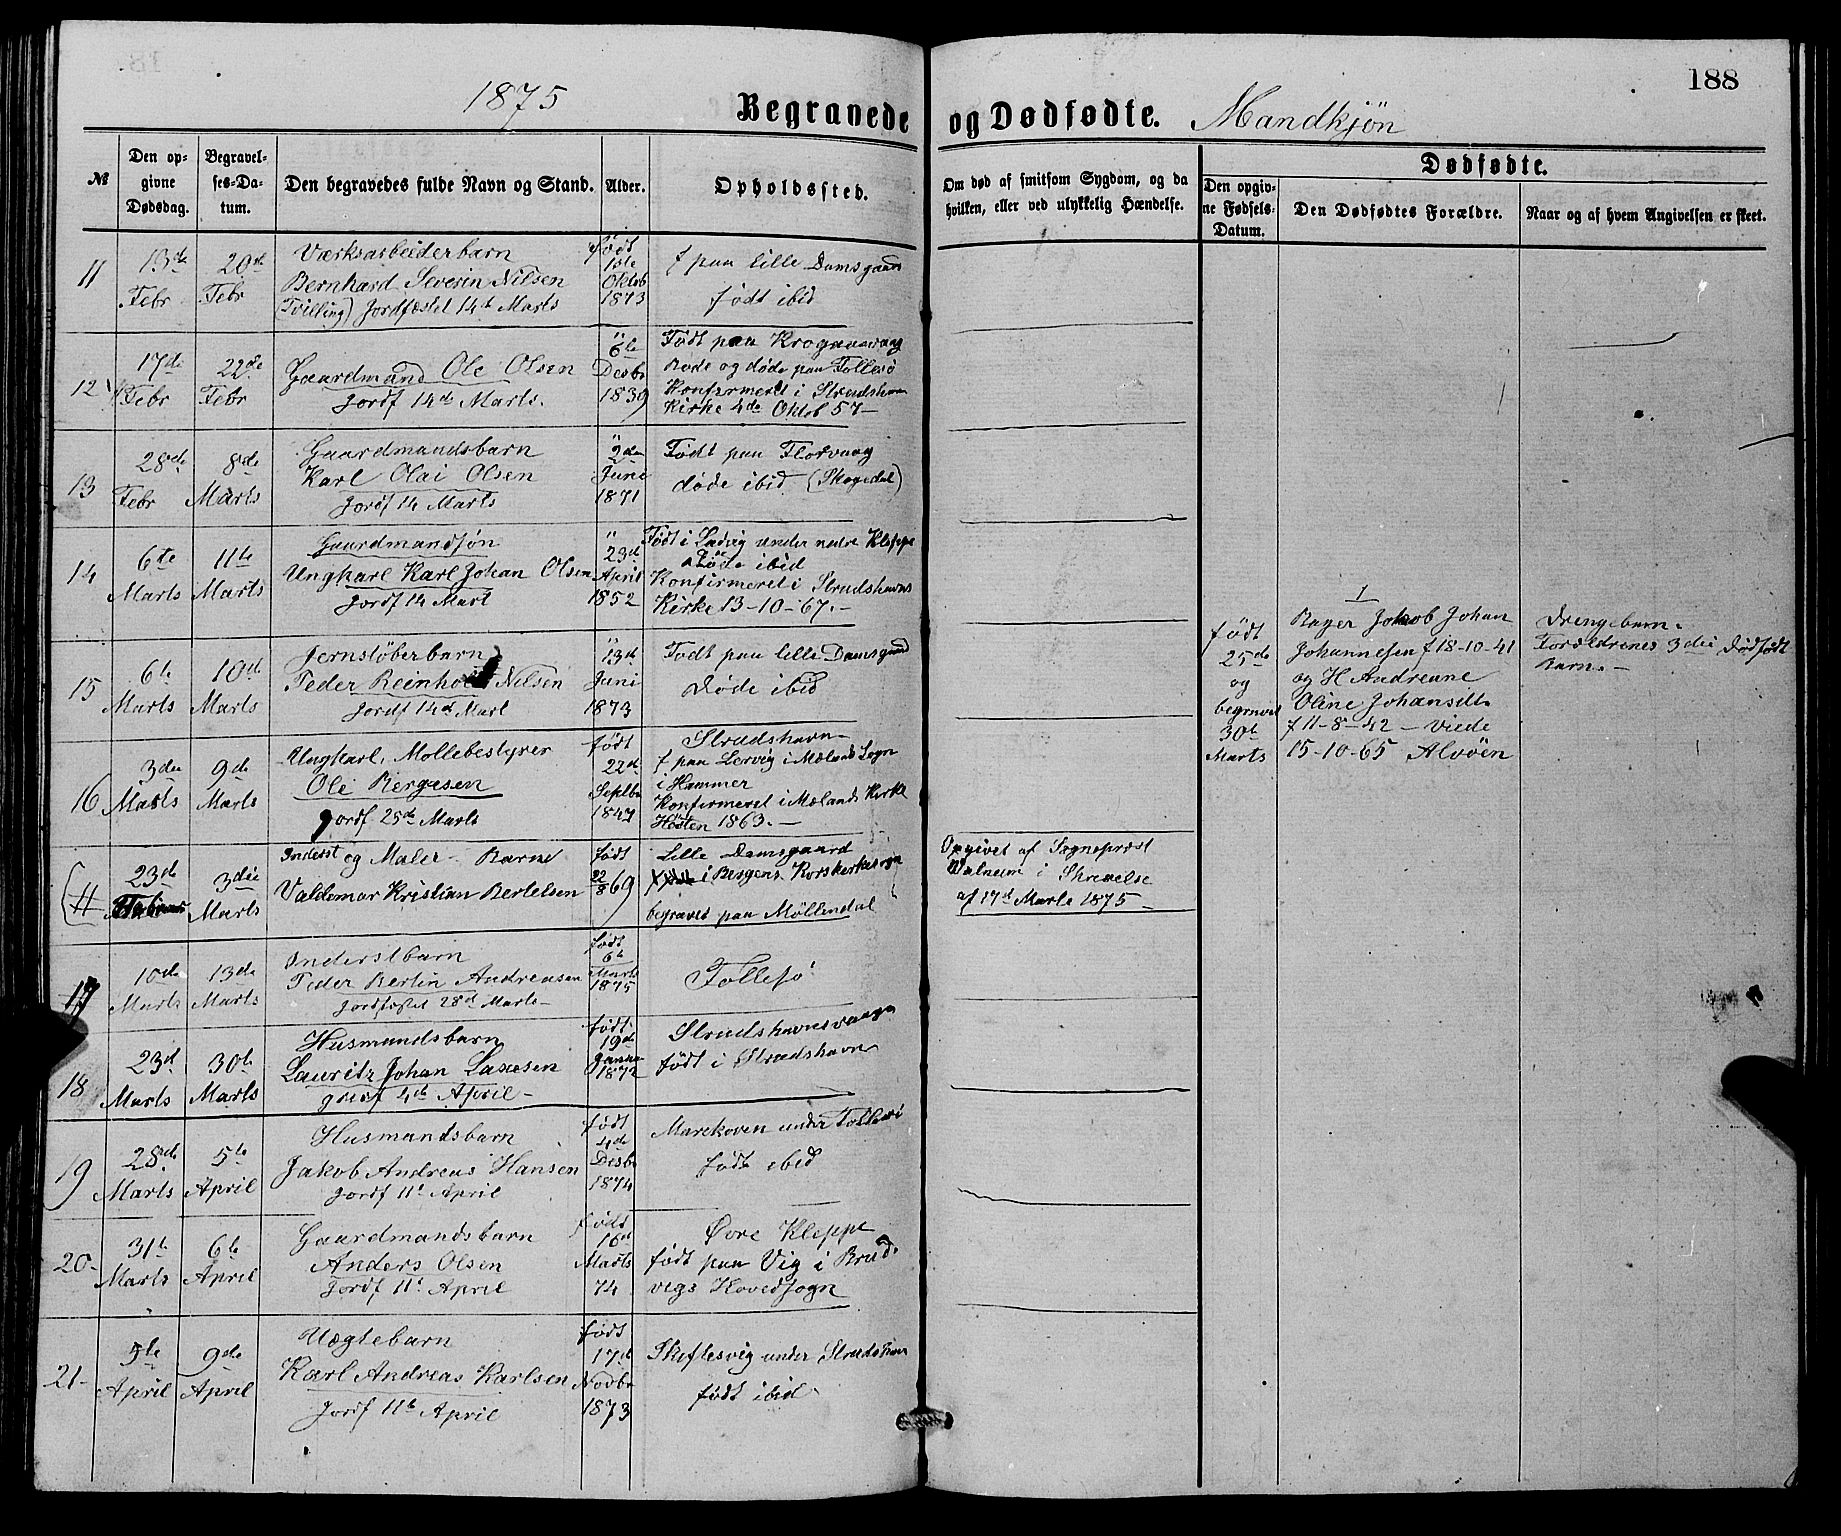 188
1875
Begravede og Dødfødte. Mandkjön
№
Den opgivne Dødsdag.
Begravelses-Datum.
Den begravedes fulde Navn og Stand.
Alder.
Opholdssted.
Om død af smitsom Sygdom, og da hvilken, eller ved ulykkelig Hændelse.
Dødfødte.
Den opgivne Fødsels-Datum.
Den Dødfødtes Forældre.
Naar og af hvem Angivelsen er skeet.
11
13de Febr
20de Febr
Værksarbeiderbarn
Bernhard Severin Nilsen
(Tvilling) Jordfæstet 14de Marts
født 1ste Oktob 1873
f paa Lille Damsgaard
født ibid
12
17de Febr
22de Febr
Gaardmand Ole Olsen
Jordf 14de Marts.
6te Desbr 1839
Født paa
Boede og døde paa Follesö
Konfirmeret i Strudshavn
Kirke 4de Oktob 57 -
13
28de Febr
8de Marts
Gaardmandsbarn
Karl Olai Olsen
Jordf 14 Marts
2den Juni 1871
Født paa Florvaag
døde ibid (Skogedal)
14
6te Marts
11te Marts
Gaardmandsøn
Ungkarl Karl Johan Olsen
Jordf 14 Mart
23de April 1852
Født i Ladvig under nedre Kleppe
Døde ibid
Konfirmeret i Strudshavns
Kirke 13-10-67. -
15
6te Marts
10de Marts
Jernstöberbarn
Peder Reinholt Nilsen
Jordf 14de Mart
13de Juni 1873
Født paa lille Damsgaard
Døde ibid
16
3die Marts
9de Marts
Ungkarl, Møllebestyrer
Ole Bergesen
Jordf 25de Marts
født 22de Septbr 1847
Strudshavn
f paa Lervig i Mælands Sogn
i Hammer
Konfirmeret i Mælands Kirke
Hösten 1863. -
(H
23de
3die Marts
Inderst og Maler - Barne
Valdemar Kristian Bertelsen
født 22/8 69
Lille Damsgaard
i Bergens Korskirkesogn
begravet paa Møllendal
Opgivet af Sognepræst
i Skrivelse
af 17de Marts 1875 -
17
10de Marts
13de Marts
Inderstbarn
Peder Bertin Andreasen
Jordfæstet 28de Marts -
født 6te Marts 1875
Follesø
18
23de Marts
30te Marts
Husmandsbarn
Lauritz Johan Lassesen
Jordf 4de April -
født 19de Januar 1872
Strudshavnsvaagen
født i Strudshavn
19
28de Marts
5te April
Husmandsbarn
Jakob Andreas Hansen
Jordf 11te April
født 4de Desbr 1874
under Follesö
født ibid
20-
31te Marts
6te April
Gaardmandsbarn
Anders Olsen
Jordf 11te April
født 16de Marts 74
Øvre Kleppe
født paa Vig i Brud-
vigs Hovedsogn
21-
5te April
9de April
Uægtebarn
Karl Andreas Karlsen
Jordf 11te April
født 17de Novbr 1873
Skiftesvig under Strudshavn
født ibid
født 25de og begravet 30te Marts
1
Bager Jakob Johan
Johannesen f 18-10-41
og H Andreane
Oline Johansdtr
f 11-8-42 - Viede
15-10-65 Alvöen
Drengebarn.
Forældrenes 3die Dødfødt
Barn. -